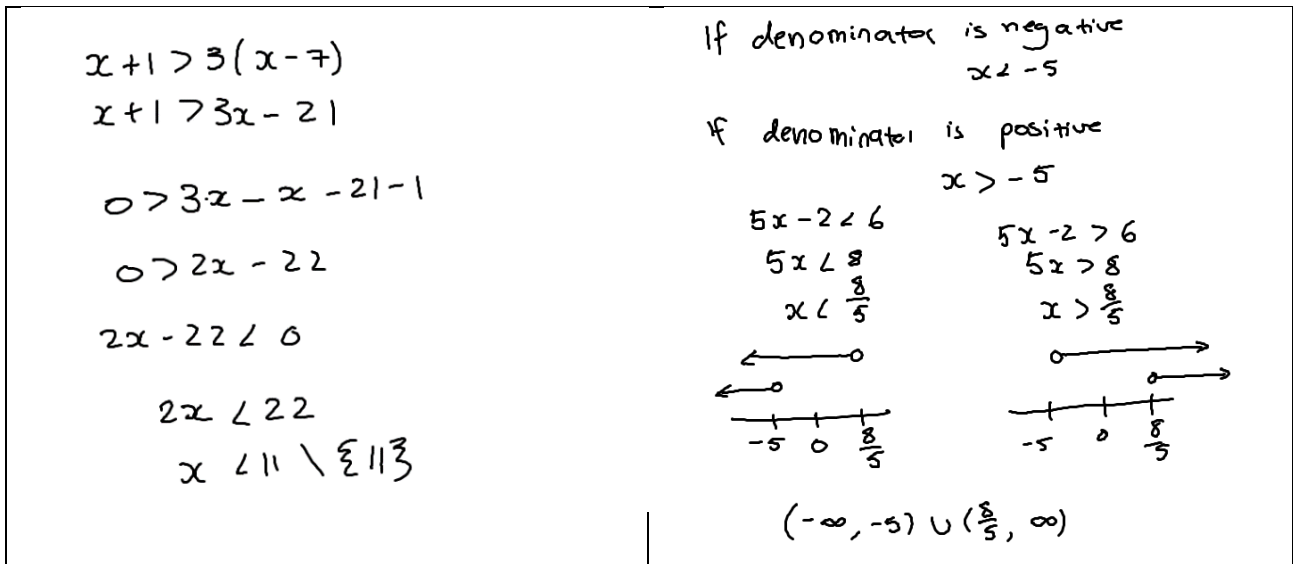 x+1 > 3(x-7)
x+1 > 3x - 21
0 > 3x - x - 21 - 1
0 > 2x - 22
2x - 22 < 0
2x < 22
x < 11 \ {11}
If denominator is negative
x < -5
If denominator is positive
x > -5
5x - 2 < 6
5x < 8
x < 8/5
-5 0 8/5
5x - 2 > 6
5x > 8
x > 8/5
-5 0 8/5
(-∞, -5) ∪ (8/5, ∞)